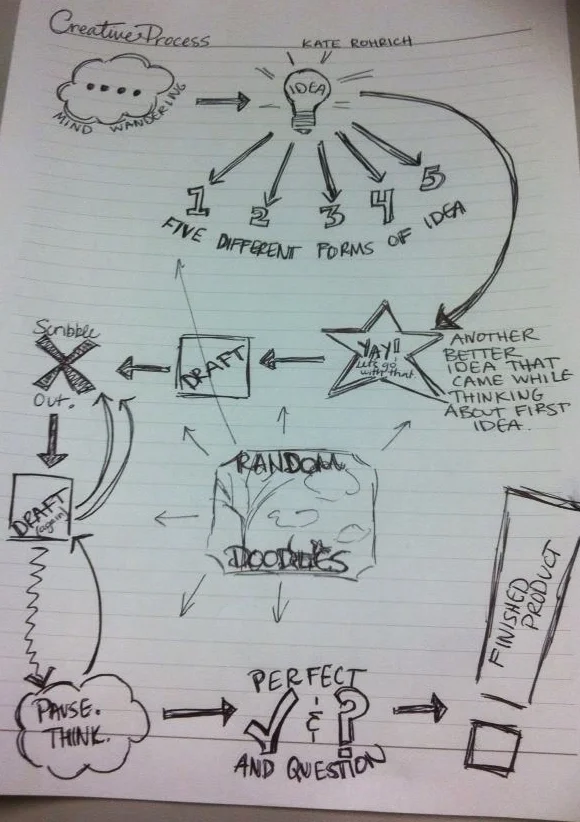 Creative Process
KATE ROHRICH
MIND WANDERING
IDEA
1 2 3 4 5
FIVE DIFFERENT FORMS OF IDEA
YAY!
Let's go
with that.
ANOTHER
BETTER
IDEA THAT
CAME WHILE
THINKING
ABOUT FIRST
IDEA.
DRAFT
Scribble
Out.
DRAFT
(again)
RANDOM
DOODLES
PAUSE.
THINK.
PERFECT
&
?
AND QUESTION
FINISHED
PRODUCT